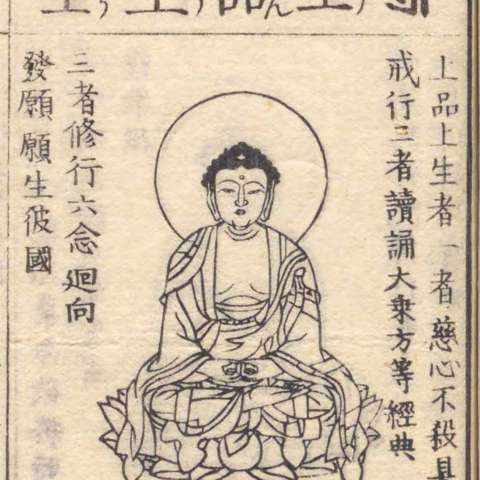 上品上生
上品上生者一者慈心不殺具
戒行二者讀誦大乗方等經典
三者修行六念廻向
發願願生彼國